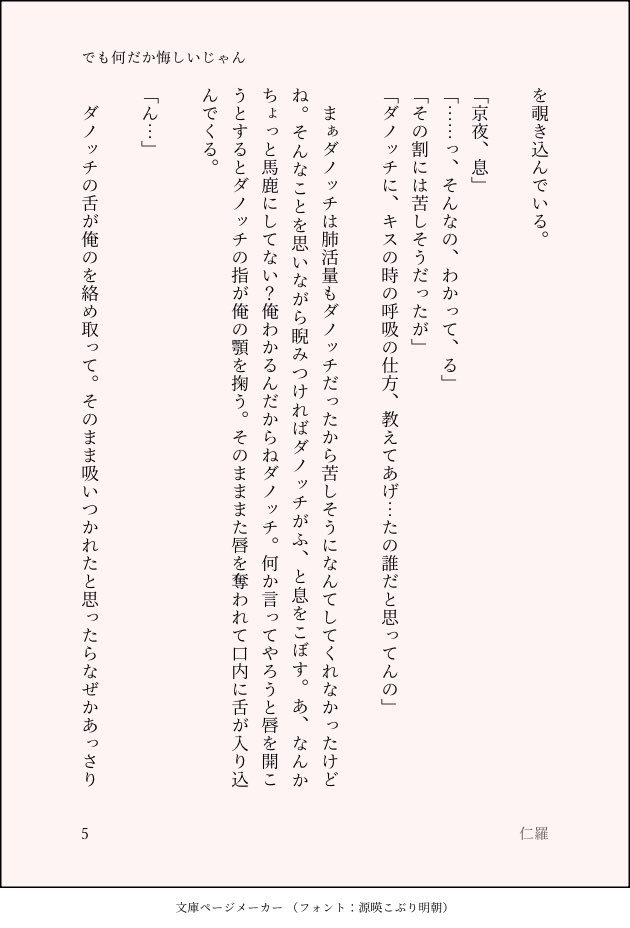 でも何だか悔しいじゃん
を覗き込んでいる。
「京夜、息」
「……っ、そんなの、わかって、る」
「その割には苦しそうだったが」
「ダノッチに、キスの時の呼吸の仕方、教えてあげ…たの誰だと思ってんの」
まぁダノッチは肺活量もダノッチだったから苦しそうになんてしてくれなかったけど
ね。そんなことを思いながら睨みつければダノッチがふ、と息をこぼす。あ、なんか
ちょっと馬鹿にしてない？俺わかるんだからねダノッチ。何か言ってやろうと唇を開こ
うとするとダノッチの指が俺の顎を掬う。そのまままた唇を奪われて口内に舌が入り込
んでくる。
「ん…」
ダノッチの舌が俺のを絡め取って。そのまま吸いつかれたと思ったらなぜかあっさり
5
仁羅
文庫ページメーカー （フォント：源暎こぶり明朝）